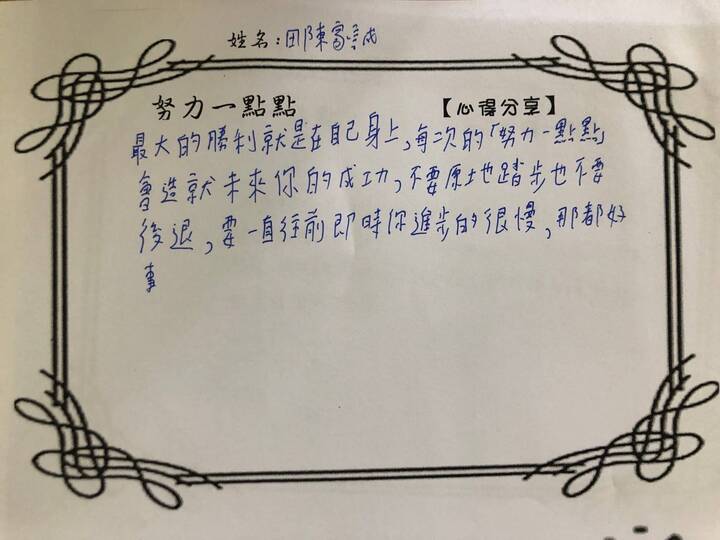 姓名：田陳富誠
努力一點點 【心得分享】
最大的勝利就是在自己身上，每次的「努力一點點」
會造就未來你的成功，不要原土也踏步也不要
後退，要一直往前即時你進步的很慢，那都好
事